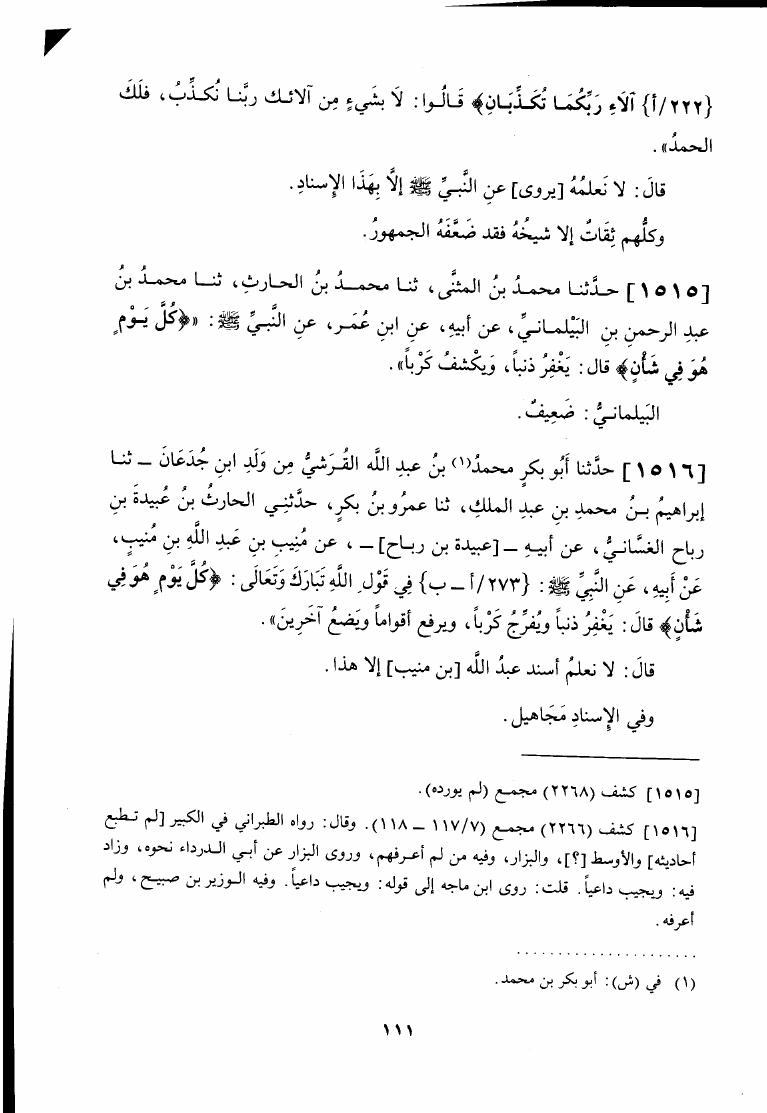 {٢٢٢/أ} آلَاءِ رَبِّكُمَـا تُكَـذِّبَـانِ﴾ قَـالُـوا: لاَ بشَيءٍ مِن آلائـك ربَّنـا نُكـذِّبُ، فلَكَ
الحمدُ».
قالَ: لا نَعلمُهُ [يروى] عنِ النَّبيِّ ﷺ إلاَّ بِهَذَا الإِسنادِ.
وكلُّهم ثِقَاتٌ إلا شيخُهُ فقد ضَعَّفَهُ الجمهورُ.
[١٥١٥] حـدَّثنـا محمـدُ بنُ المثنَّى، ثنـا محمـدُ بنُ الحـارثِ، ثنـا محمـدُ بنُ
عبدِ الرحمنِ بنِ البَيْلمـانـيِّ، عن أبيهِ، عنِ ابنِ عُمَـر، عنِ النَّبـيِّ ﷺ: «﴿كُلَّ يَـوْمٍ
هُوَ فِي شَأْنٍ﴾ قال: يَغْفِرُ ذنباً، وَيكْشفُ كَرْباً».
البَيلمانيُّ: ضَعِيفٌ.
[١٥١٦] حدَّثنا أَبُو بكرٍ محمدُ(١) بنُ عبدِ اللَّه القُـرَشيُّ مِن وَلَدِ ابنِ جُدَعَانَ ــ ثنـا
إبراهيمُ بـنُ محمدِ بنِ عبدِ الملكِ، ثنا عمرُو بنُ بكرٍ، حدَّثنِـي الحارثُ بنُ عُبيدةَ بنِ
رباح الغسَّانيُّ، عن أبيـهِ ــ [عبيدة بن ربـاح] ــ، عن مُنِيبِ بنِ عَبدِ اللَّهِ بنِ مُنيبٍ،
عَنْ أَبيهِ، عَنِ النَّبيِّ ﷺ: {٢٧٣/أ ــ ب} فِي قَوْلِ اللَّهِ تَبَارَكَ وَتَعَالَى: ﴿كُلَّ يَوْمٍ هُوَ فِي
شَأْنٍ﴾ قالَ: يَغْفِرُ ذنباً ويُفرِّجُ كَرْباً، ويرفع أقواماً ويَضعُ آخَرِينَ».
قالَ: لا نعلمُ أسند عبدُ اللَّه [بن منيب] إلا هذا.
وفي الإِسنادِ مَجَاهيل.
[١٥١٥] كشف (٢٢٦٨) مجمـع (لم يورده).
[١٥١٦] كشف (٢٢٦٦) مجمـع (١١٧/٧ ــ ١١٨). وقال: رواه الطبراني في الكبير [لم تـطبع
أحاديثه] والأوسط [؟]، والبزار، وفيه من لم أعـرفهم، وروى البزار عن أبـي الـدرداء نحوه، وزاد
فيه: ويجيب داعياً. قلت: روى ابن ماجه إلى قوله: ويجيب داعياً. وفيه الـوزير بن صبيـح، ولم
أعرفه.
(١) في (ش): أبو بكر بن محمد.
١١١